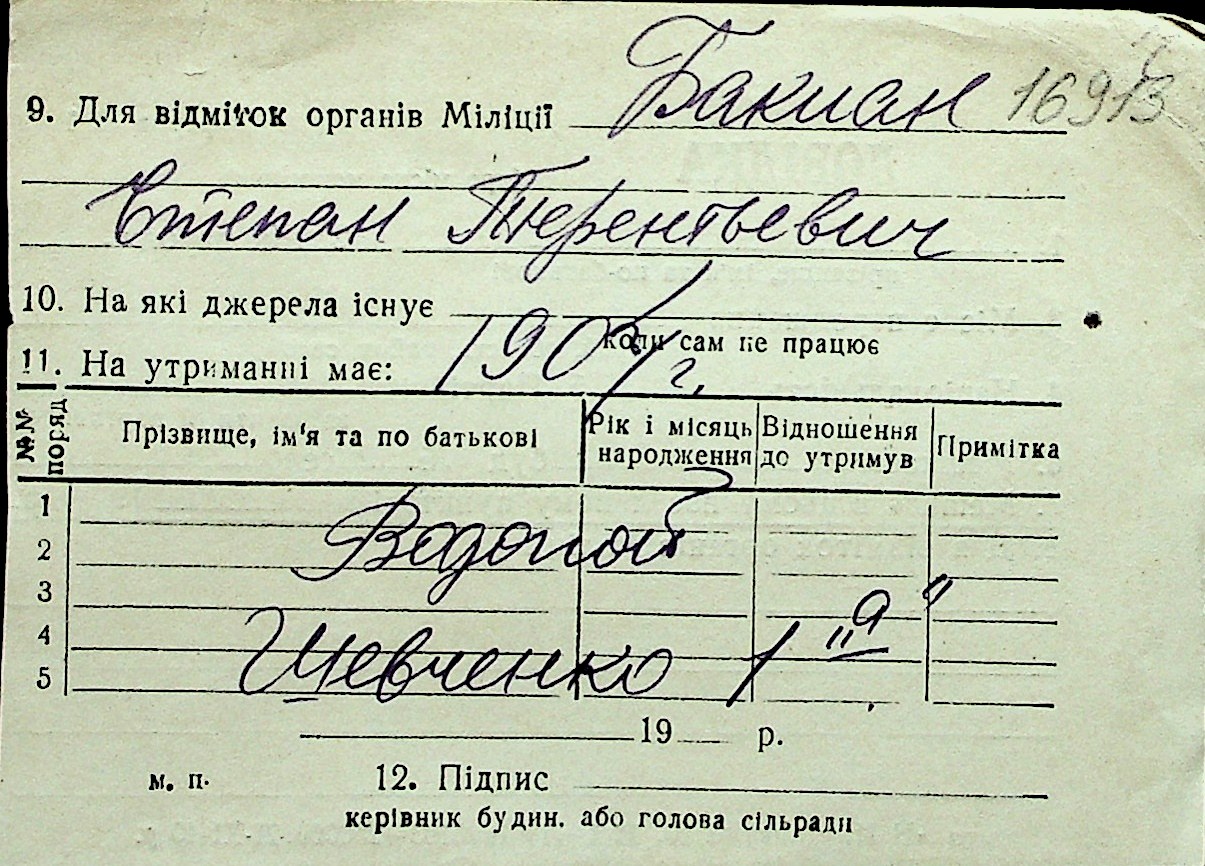 Бакиан 16913
9. Для відміток органів Міліції
Степан Терентьевич
10. На які джерела існує
190 г.
коли сам не працює
11. На утриманні має:
№№ поряд
Прізвище, ім'я та по батькові
Рік і місяць народження
Відношення до утримув
Примітка
1
2
3
4
5
Водопой
Шевченко 1 "а"
19 р.
м. п. 12. Підпис
керівник будин. або голова сільради